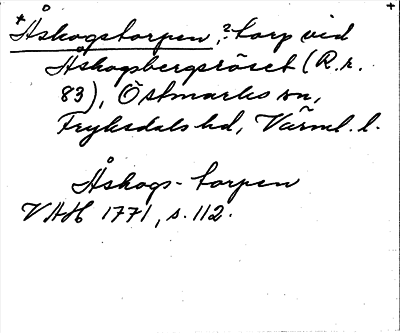 +Åskogstorpen, ? torp vid
Åskogsbergsröset (R.r.
83), Östmarks sn,
Fryksdals hd, Värml. l.
Åskogs-torpen
VAH 1771, s. 112.